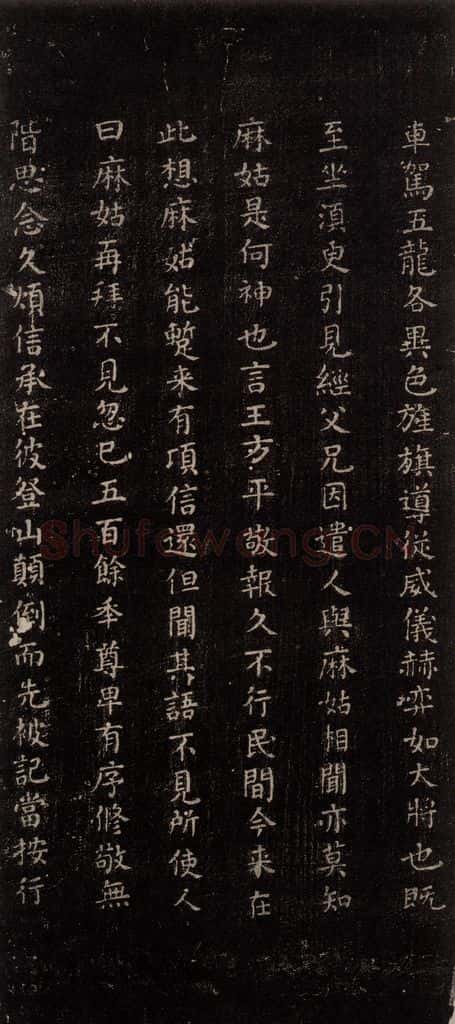 車駕五龍各異色旌旗導從威儀赫弈如大將也既
至坐湏臾引見經父兄因遣人與麻姑相聞亦莫知
麻姑是何神也言王方平敬報久不行民間今来在
此想麻姑能蹔来有項信還但聞其語不見所使人
曰麻姑再拜不見忽已五百餘年尊卑有序修敬無
階思念久煩信承在彼登山顛倒而先被記當按行
Shufawang.CN